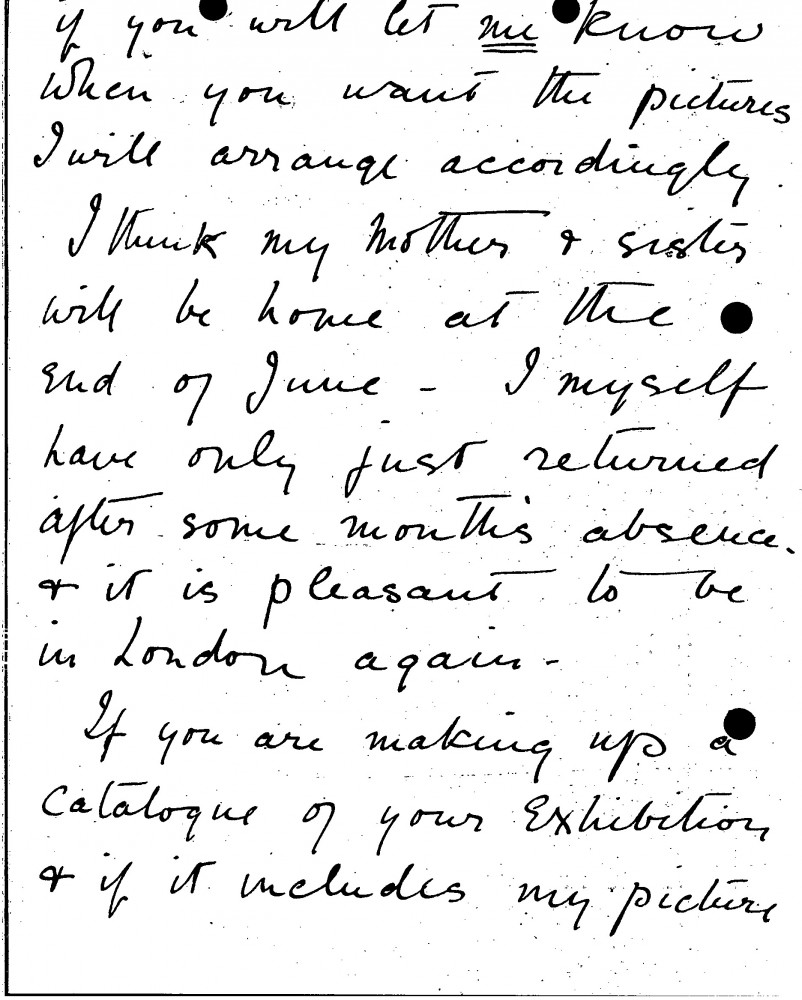 if you will let me know
when you want the pictures
I will arrange accordingly.
I think my Mother & sister
will be home at the
end of June - I myself
have only just returned
after some month's absence.
& it is pleasant to be
in London again -
If you are making up a
Catalogue of your Exhibition
& if it includes my picture